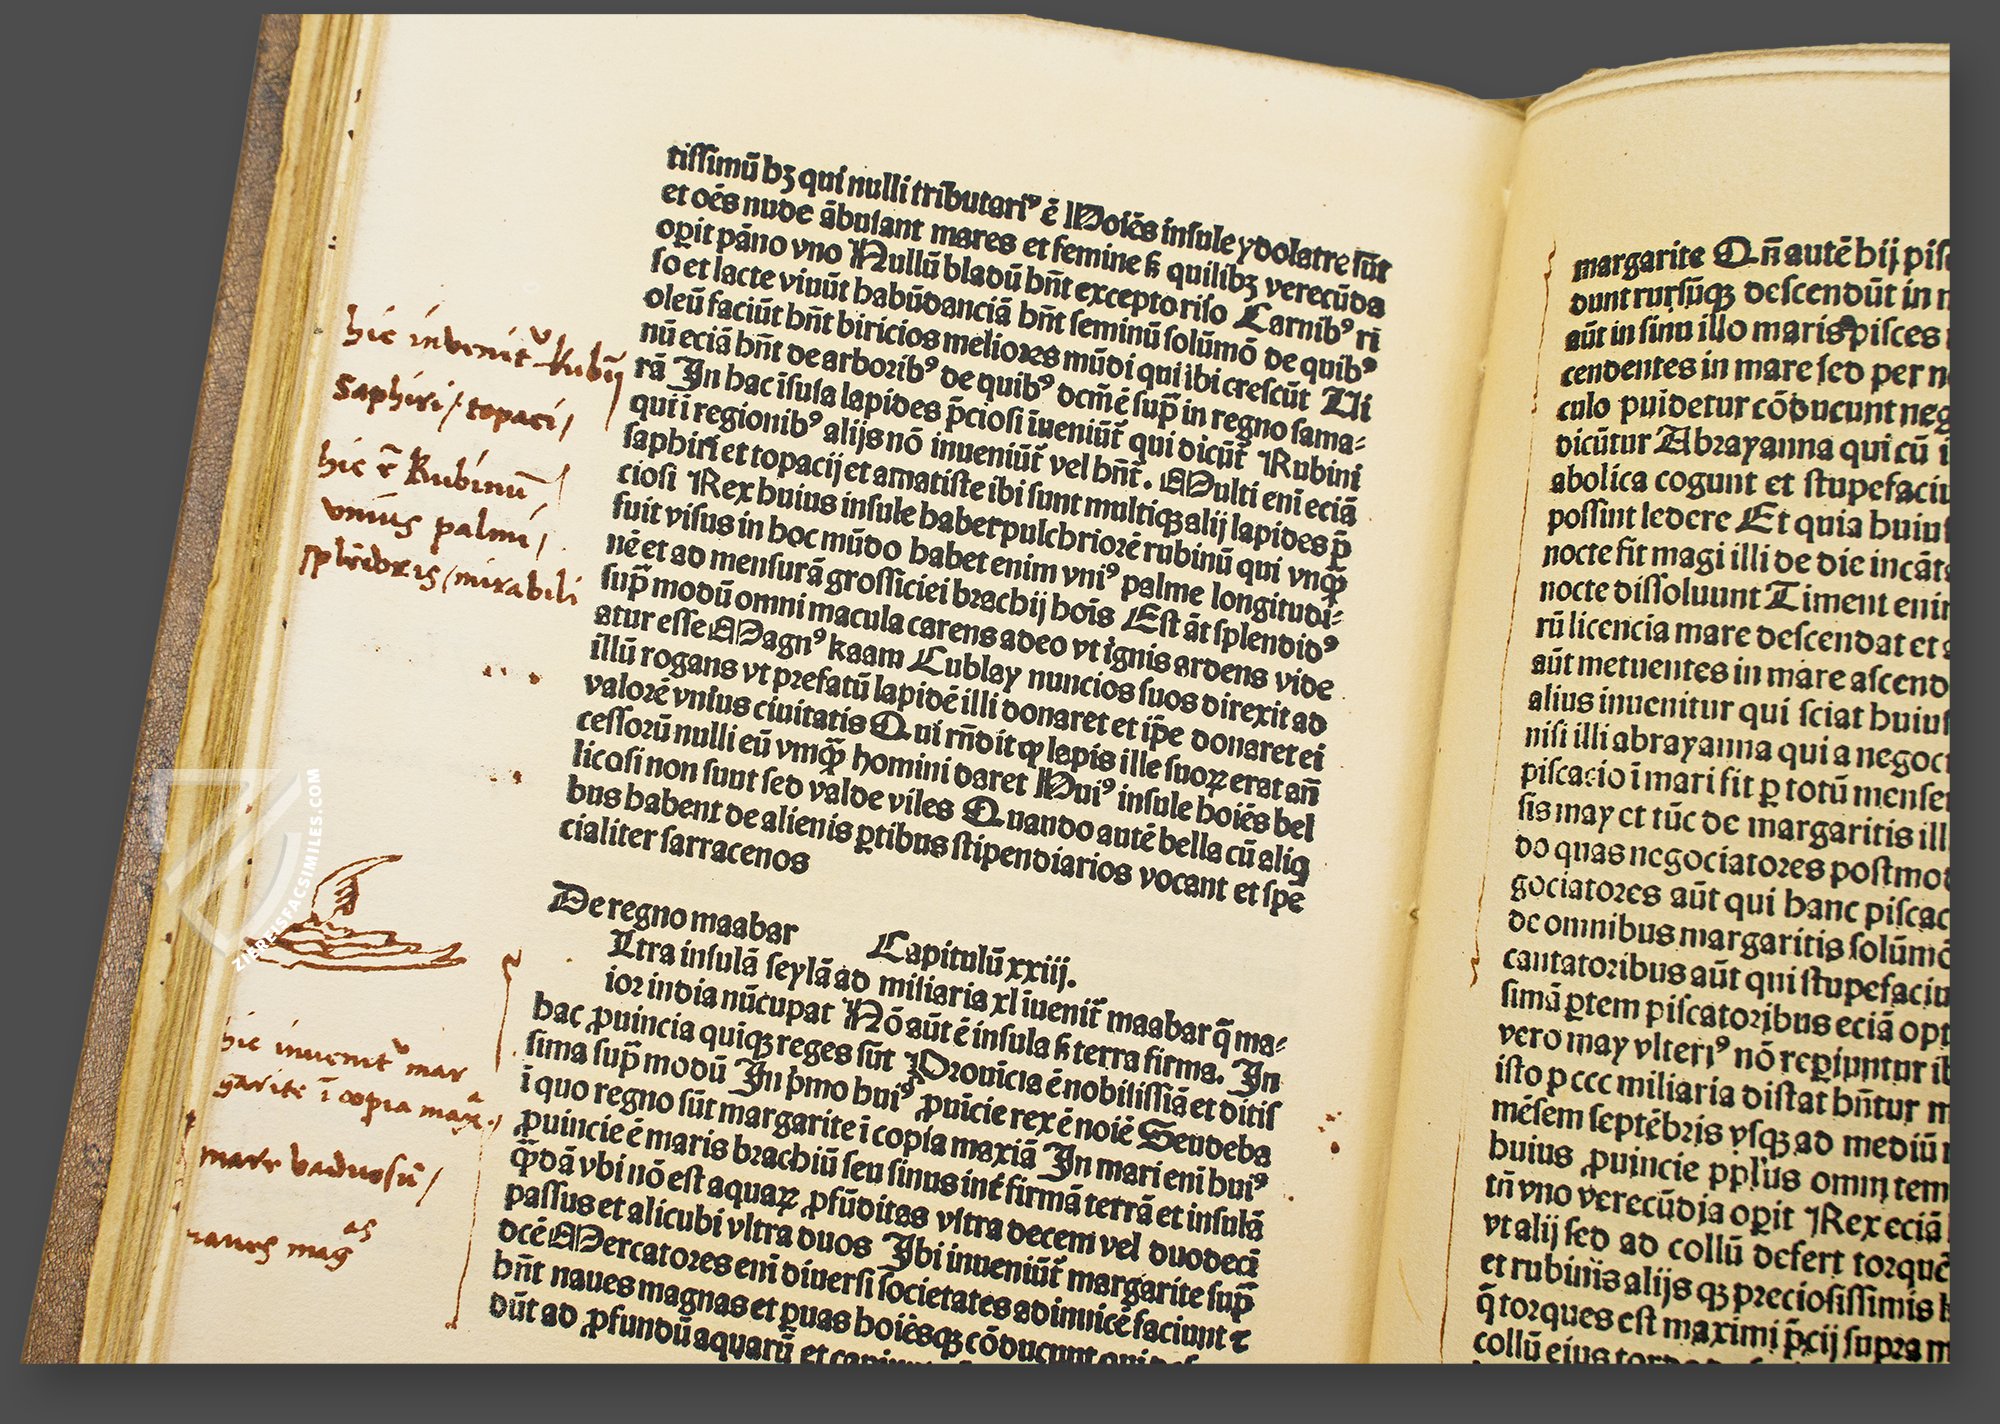 tissimū hꝫ qui nulli tributariꝰ ē Hoiēs insule ydolatre sūt
et oēs nude ābulant mares et femine ꝭ quilibꝫ verecūda
oꝑit pāno vno Nullū bladū hn̄t excepto riso Carnibꝰ ri
so et lacte viuūt habūdanciā hn̄t seminū solūmō de quibꝰ
oleū faciūt hn̄t biricios meliores mūdi qui ibi crescūt Ui
nū eciā hn̄t de arboribꝰ de quibꝰ dcm̄ ē suꝑ in regno sama⸗
rā In hac īsula lapides p̄ciosi īueniūt̄ qui dicūt̄ Rubini
qui ī regionibꝰ alijs nō inueniūt̄ vel hn̄t̄. Multi enī eciā
saphiri et topacij et amatiste ibi sunt multiqꝫ alij lapides p̄
ciosi Rex huius insule habet pulchriorē rubinū qui vnqꝫ̄
fuit visus in hoc mūdo habet enim vniꝰ palme longitudi⸗
nē et ad mensurā grossiciei brachij hoīs Est āt splendidꝰ
sup̄ modū omni macula carens adeo vt ignis ardens vide
atur esse Magnꝰ kaam Cublay nuncios suos direxit ad
illū rogans vt prefatū lapidē illi donaret et ip̄e donaret ei
valorē vnius ciuitatis Qui rn̄dit ꝙ lapis ille suoꝝ erat an̄
cessorū nulli eū vmqꝫ̄ homini daret Huiꝰ insule hoiēs bel
licosi non sunt sed valde viles Quando autē bella cū aliq̄
bus habent de alienis ꝑtibus stipendiarios vocant et spe
cialiter sarracenos
De regno maabar Capitulū xxiij.
Ltra insulā seylā ad miliaria xl īuenit̄ maabar q̄ ma⸗
ior india nūcupat Nō aūt ē insula ꝭ terra firma. In
hac ꝓuincia quiqꝫ reges sūt Prouīcia ē nobilissīa et ditis
sima sup̄ modū In p̄mo huiꝰ ꝓuīcie rex ē noīe Seudeba
ī quo regno sūt margarite ī copia maxīa In mari enī huiꝰ
ꝓuincie ē maris brachiū seu sinus int̄ firmā terrā et insulā
qꝫ̄dā vbi nō est aquaꝝ ꝓfūditas vltra decem vel duodecī
passus et alicubi vltra duos Ibi inueniūt̄ margarite sup̄
dcē Mercatores enī diuersi societates adinuicē faciunt ⁊
hn̄t naues magnas et ꝑuas hoiēsqꝫ cōducunt qui des
dūt ad ꝓfundū aquarū et
hic invenit̉ Rubīj
saphiri / topaci /
hic ē Rubinū
vnius palmi /
splēdoris / mirabili
hic inuenit̉ mar
garite ī copia max̄ᵃ /
mare vaduosū /
naues magᵃˢ
margarite Qn̄ autē hij pisc
dunt rursūqꝫ descendūt in m
aūt in sinu illo maris pisces
cendentes in mare sed per ne
culo puidetur cōducunt neg
dicūtur Abrayanna qui cū i
abolica cogunt et stupefaciu
possint ledere Et quia huius
nocte fit magi illi de die incāta
nocte dissoluunt Timent enim
rū licencia mare descendat et a
aūt metuentes in mare ascend
alius inuenitur qui sciat huius
nisi illi abrayanna qui a negoc
piscacio ī mari fit ꝑ totū mense
sis may et tūc de margaritis ill
do quas negociatores postmod
gociatores aūt qui hanc piscac
de omnibus margaritis solūmō
cantatoribus aūt qui stupefaciu
simā ꝑtem piscatoribus eciā opt
vero may vlteriꝰ nō reꝑiuntur ib
isto p ccc miliaria distat hn̄tur m
mēsem septēbris vsqꝫ ad mediū
huius ꝓuincie ppl̄us omni tem
tn̄ vno verecūdia oꝑit Rex eciā
vt alij sed ad collū defert torquē
et rubinis alijs qꝫ preciosissimis
q̄ torques est maximi p̄cij supra m
collū eius
ZIEREISFACSIMILES.COM